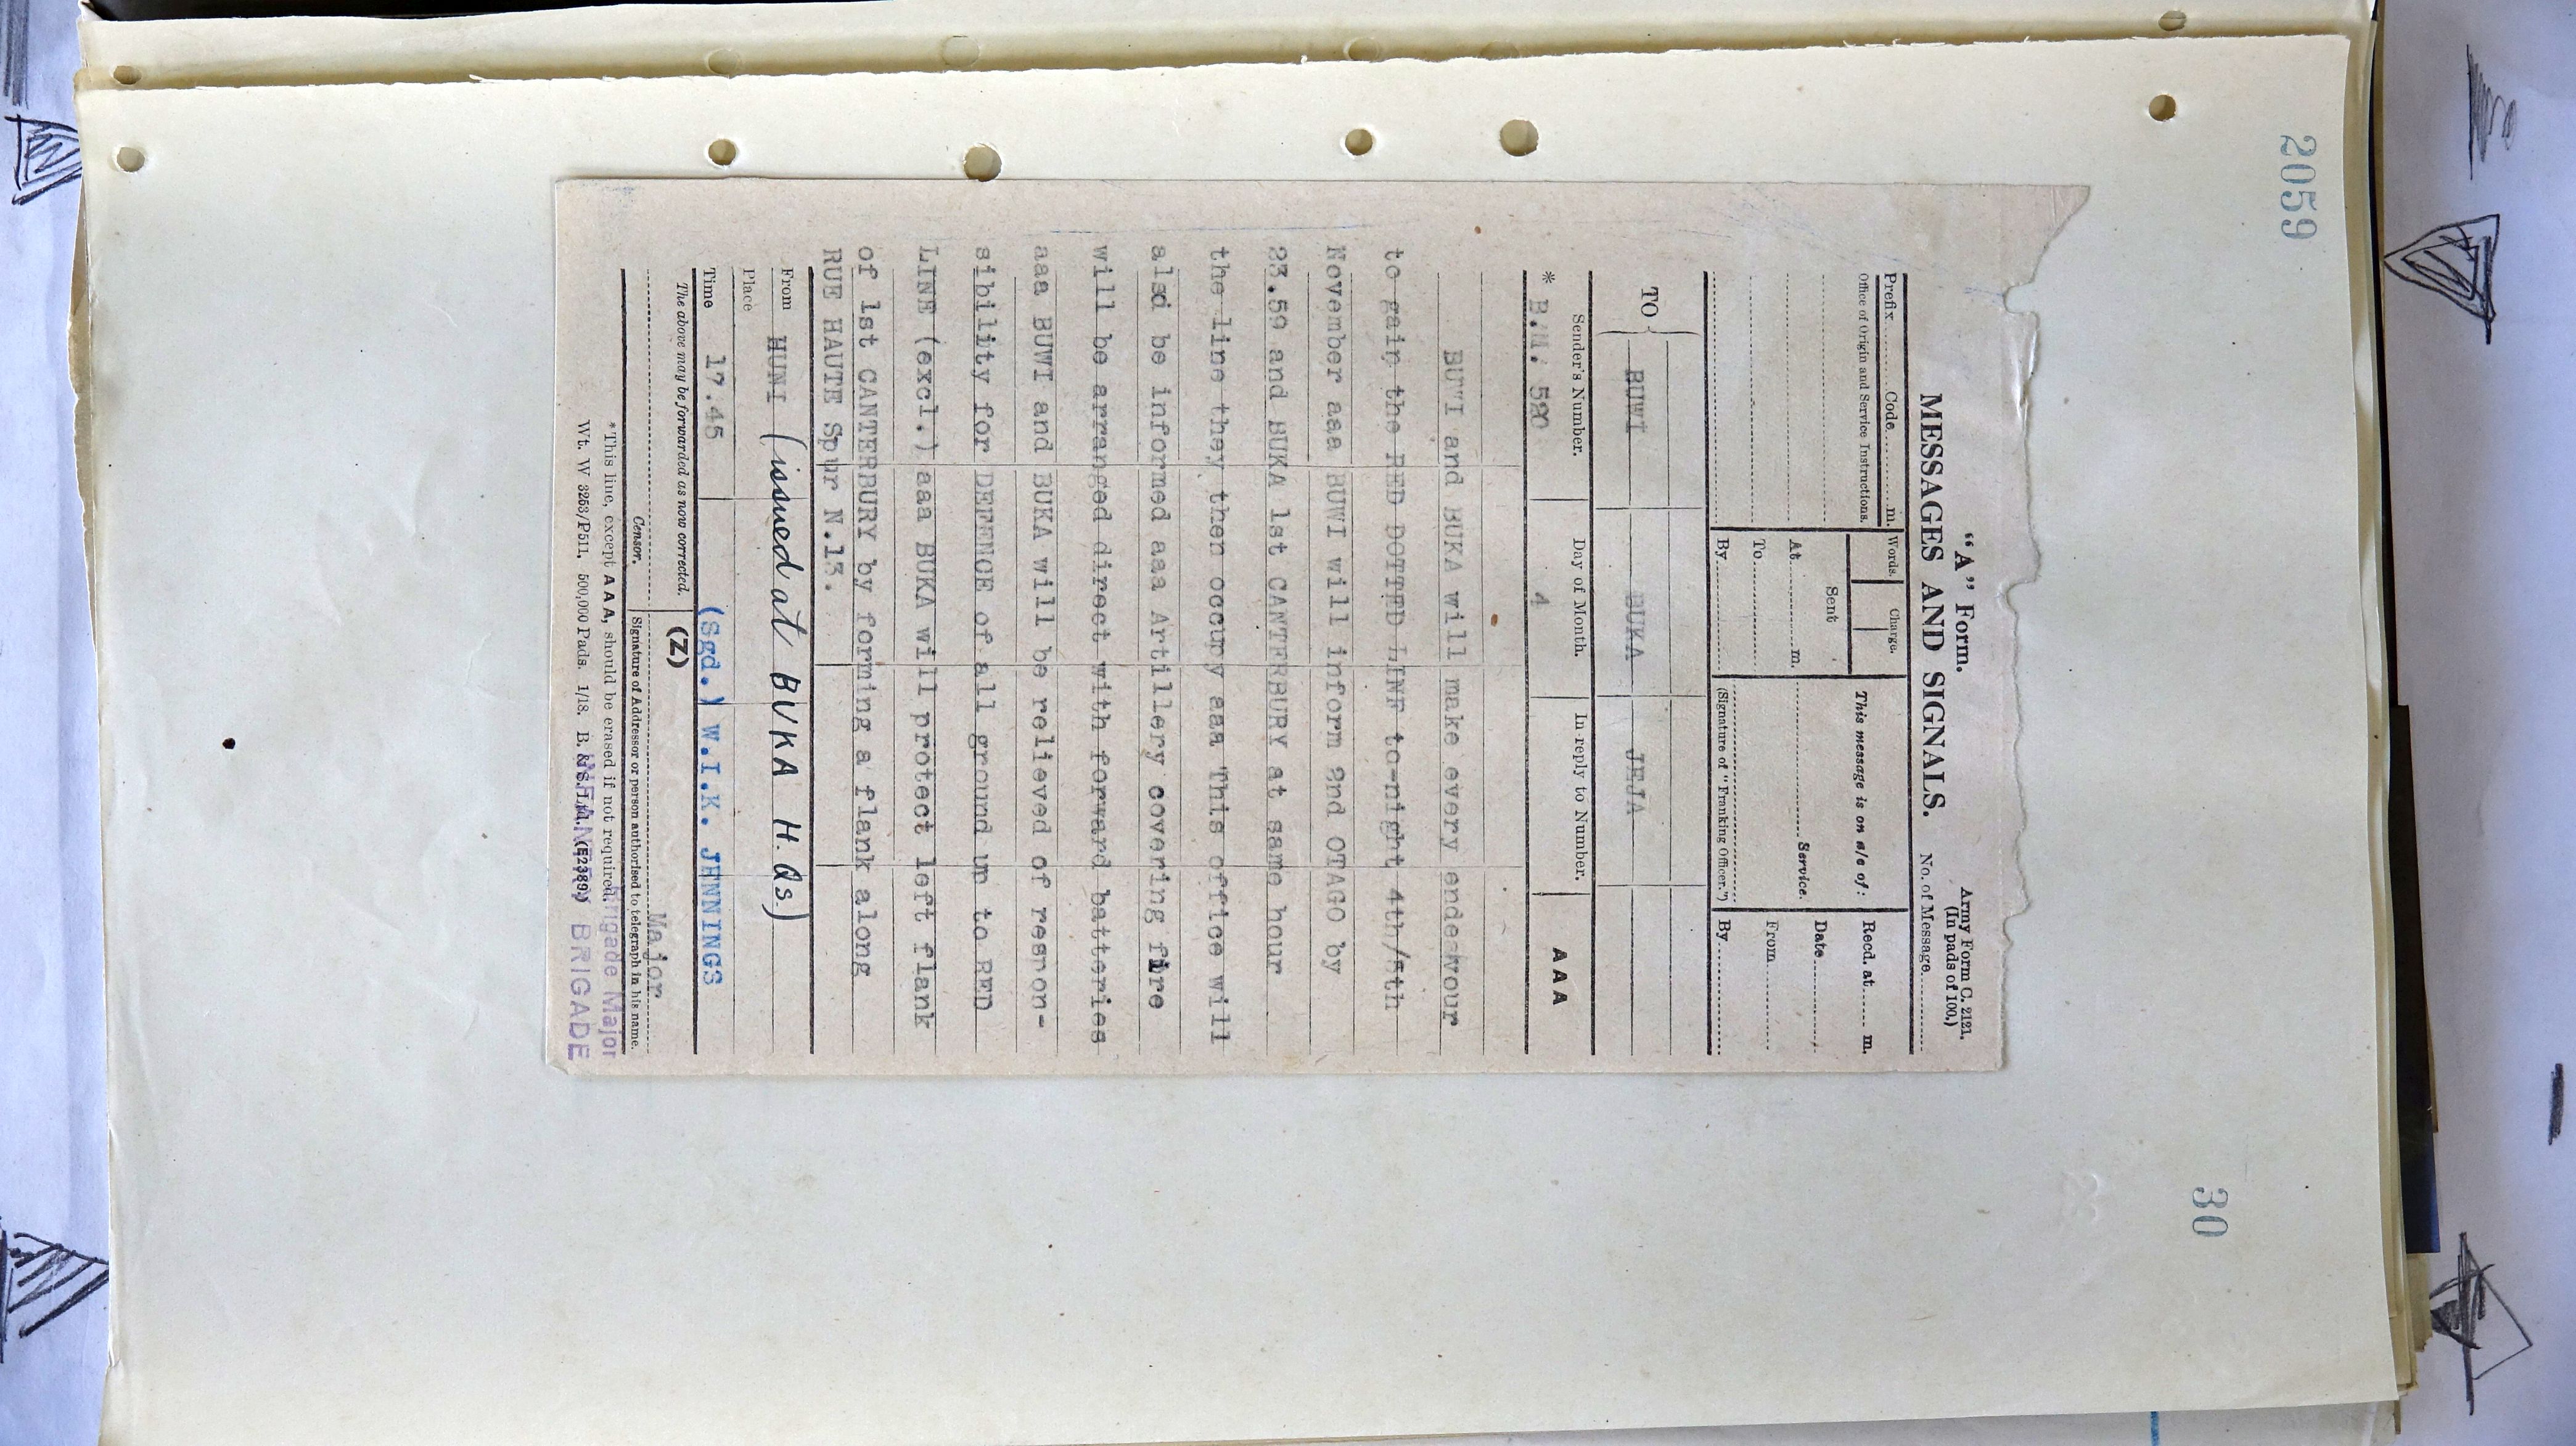 2059
30
"A" Form.
Army Form C. 2121.
(In pads of 100.)
MESSAGES AND SIGNALS.
No. of Message
Prefix Code m.
Words.
Charge.
This message is on a/c of:
Recd. at m.
Office of Origin and Service Instructions.
Sent
At m.
Service.
Date
To
From
By
(Signature of "Franking Officer.")
By
TO
BUWI
BUKA
JEJA
Sender's Number.
Day of Month.
In reply to Number.
AAA
* B.M. 520
4
BUWI and BUKA will make every endeavour
to gain the RED DOTTED LINE to-night 4th/5th
November aaa BUWI will inform 2nd OTAGO by
23.59 and BUKA 1st CANTERBURY at same hour
the line they then occupy aaa This office will
also be informed aaa Artillery covering fire
will be arranged direct with forward batteries
aaa BUWI and BUKA will be relieved of respon-
sibility for DEFENCE of all ground up to RED
LINE (excl.) aaa BUKA will protect left flank
of 1st CANTERBURY by forming a flank along
RUE HAUTE Spur N.13.
From HUNI (issued at BUKA H.Qs.)
Place
Time 17.45
(Sgd.) W.I.K. JENNINGS
The above may be forwarded as now corrected.
(Z)
Major
Censor.
Signature of Addressor or person authorised to telegraph in his name.
Brigade Major
*This line, except AAA, should be erased if not required.
Wt. W 3253/P511. 500,000 Pads. 1/18. B. & S. Ltd. (E2389)
BRIGADE